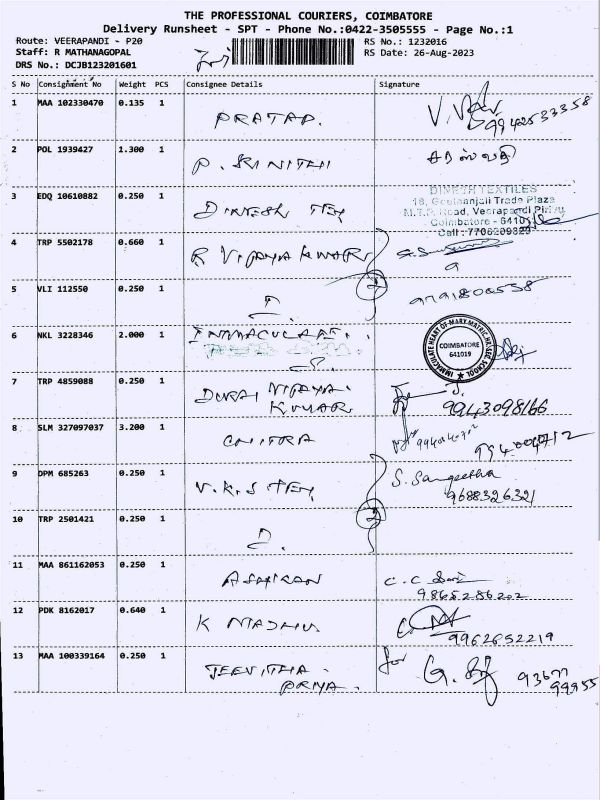 THE PROFESSIONAL COURIERS, COIMBATORE
Delivery Runsheet - SPT - Phone No.:0422-3505555 - Page No.:1
Route: VEERAPANDI - P20 RS No.: 1232016
Staff: R MATHANAGOPAL RS Date: 26-Aug-2023
DRS No.: DCJB123201601
S No Consignment No Weight PCS Consignee Details Signature
1 MAA 102330470 0.135 1 PRATAP.
9942533358
2 POL 1939427 1.300 1 P. SRINITHI
3 EDQ 10610882 0.250 1 DINESH TEX
DINESH TEXTILES
18, Geetanjali Trade Plaza
M.T.P. Road, Veerapandi Pirivu
Coimbatore - 64101
Cell : 7706209829
4 TRP 5502178 0.660 1 R VIJAYA KUMAR
2
5 VLI 112550 0.250 1
9791806558
6 NKL 3228346 2.000 1 IMMACULATE.
IMMACULATE HEART OF MARY MATRIC. HR. SEC. SCHOOL
COIMBATORE
641019
7 TRP 4859088 0.250 1 DURAI VIJAYA
KUMAR
9943098166
8 SLM 327097037 3.200 1 CHITRA
9 DPM 685263 0.250 1 V.K.S TEX S. Sangeetha
9688326321
2
10 TRP 2501421 0.250 1
11 MAA 861162053 0.250 1 C.C
9865286202
12 PDK 8162017 0.640 1 K MADHU
9962652219
13 MAA 100339164 0.250 1 JEEVITHA for G.
PRIYA. 93677
99955